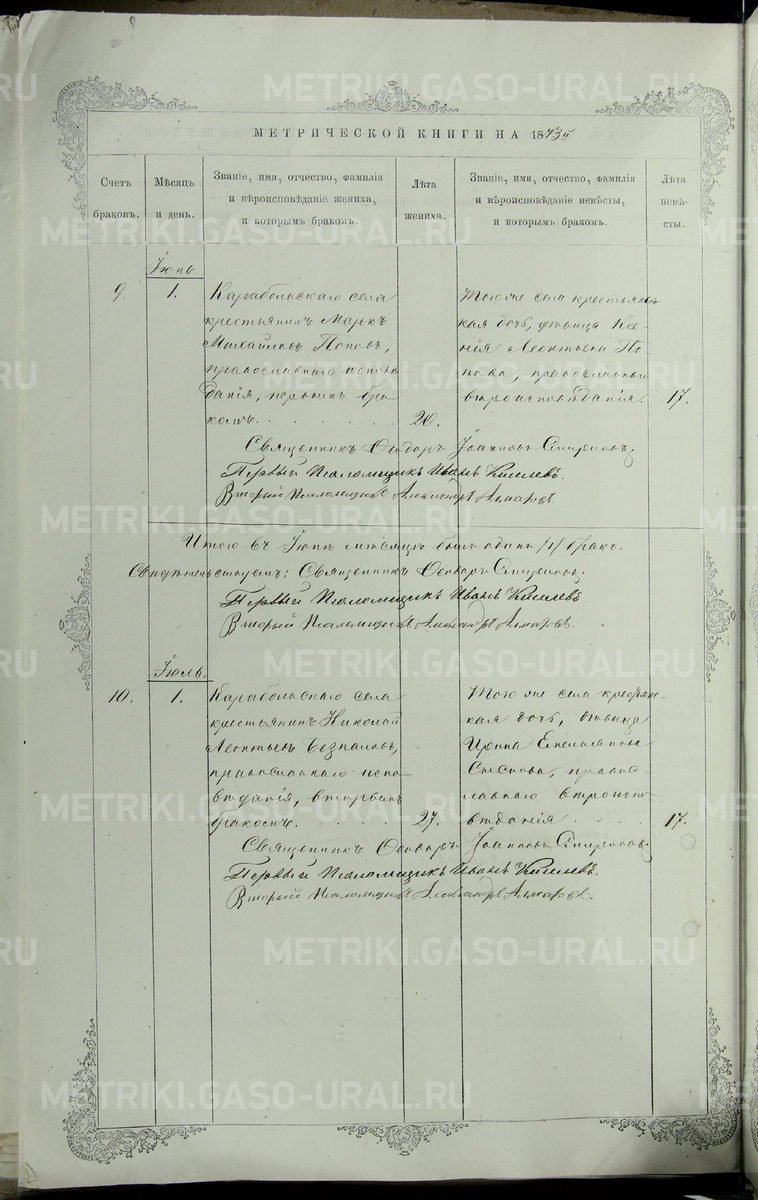 МЕТРИЧЕСКОЙ КНИГИ НА 1873й
Счетъ браковъ.
Мѣсяцъ и день.
Званіе, имя, отчество, фамилія
и вѣроисповѣданіе жениха,
и которымъ бракомъ.
Лѣта жениха.
Званіе, имя, отчество, фамилія
и вѣроисповѣданіе невѣсты,
и которымъ бракомъ.
Лѣта невѣсты.
Іюнь.
9.
1.
Карабольскаго села
крестьянинъ Маркъ
Михайловъ Поповъ,
православнаго испо
данія, первымъ бра
комъ.
20.
Того же села крестьянс
кая дочь, дѣвица Ксе
нія Леонтьева По
пова, православнаго
вѣроисповѣданія.
17.
Священникъ Ѳеодоръ Іоанновъ Спиридоновъ.
Первый Псаломщикъ Иванъ Киселевъ.
Второй Псаломщикъ Александръ
Итого въ Іюнѣ мѣсяцѣ былъ одинъ /1/ бракъ.
Свидѣтельствуемъ: Священникъ Ѳеодоръ Спиридоновъ.
Первый Псаломщикъ Иванъ Киселевъ
Второй Псаломщикъ Александръ
Іюль.
10.
1.
Карабольскаго села
крестьянинъ Николай
Леонтьевъ Безпаловъ,
православнаго испо
вѣданія, вторымъ
бракомъ.
27.
Того же села крестьянс
кая дочь, дѣвица
Ирина Емельянова
правос
лавнаго вѣроиспо
вѣданія
17.
Священникъ Ѳеодоръ Іоанновъ Спиридоновъ.
Первый Псаломщикъ Иванъ Киселевъ.
Второй Псаломщикъ Александръ
METRIKI.GASO-URAL.RU